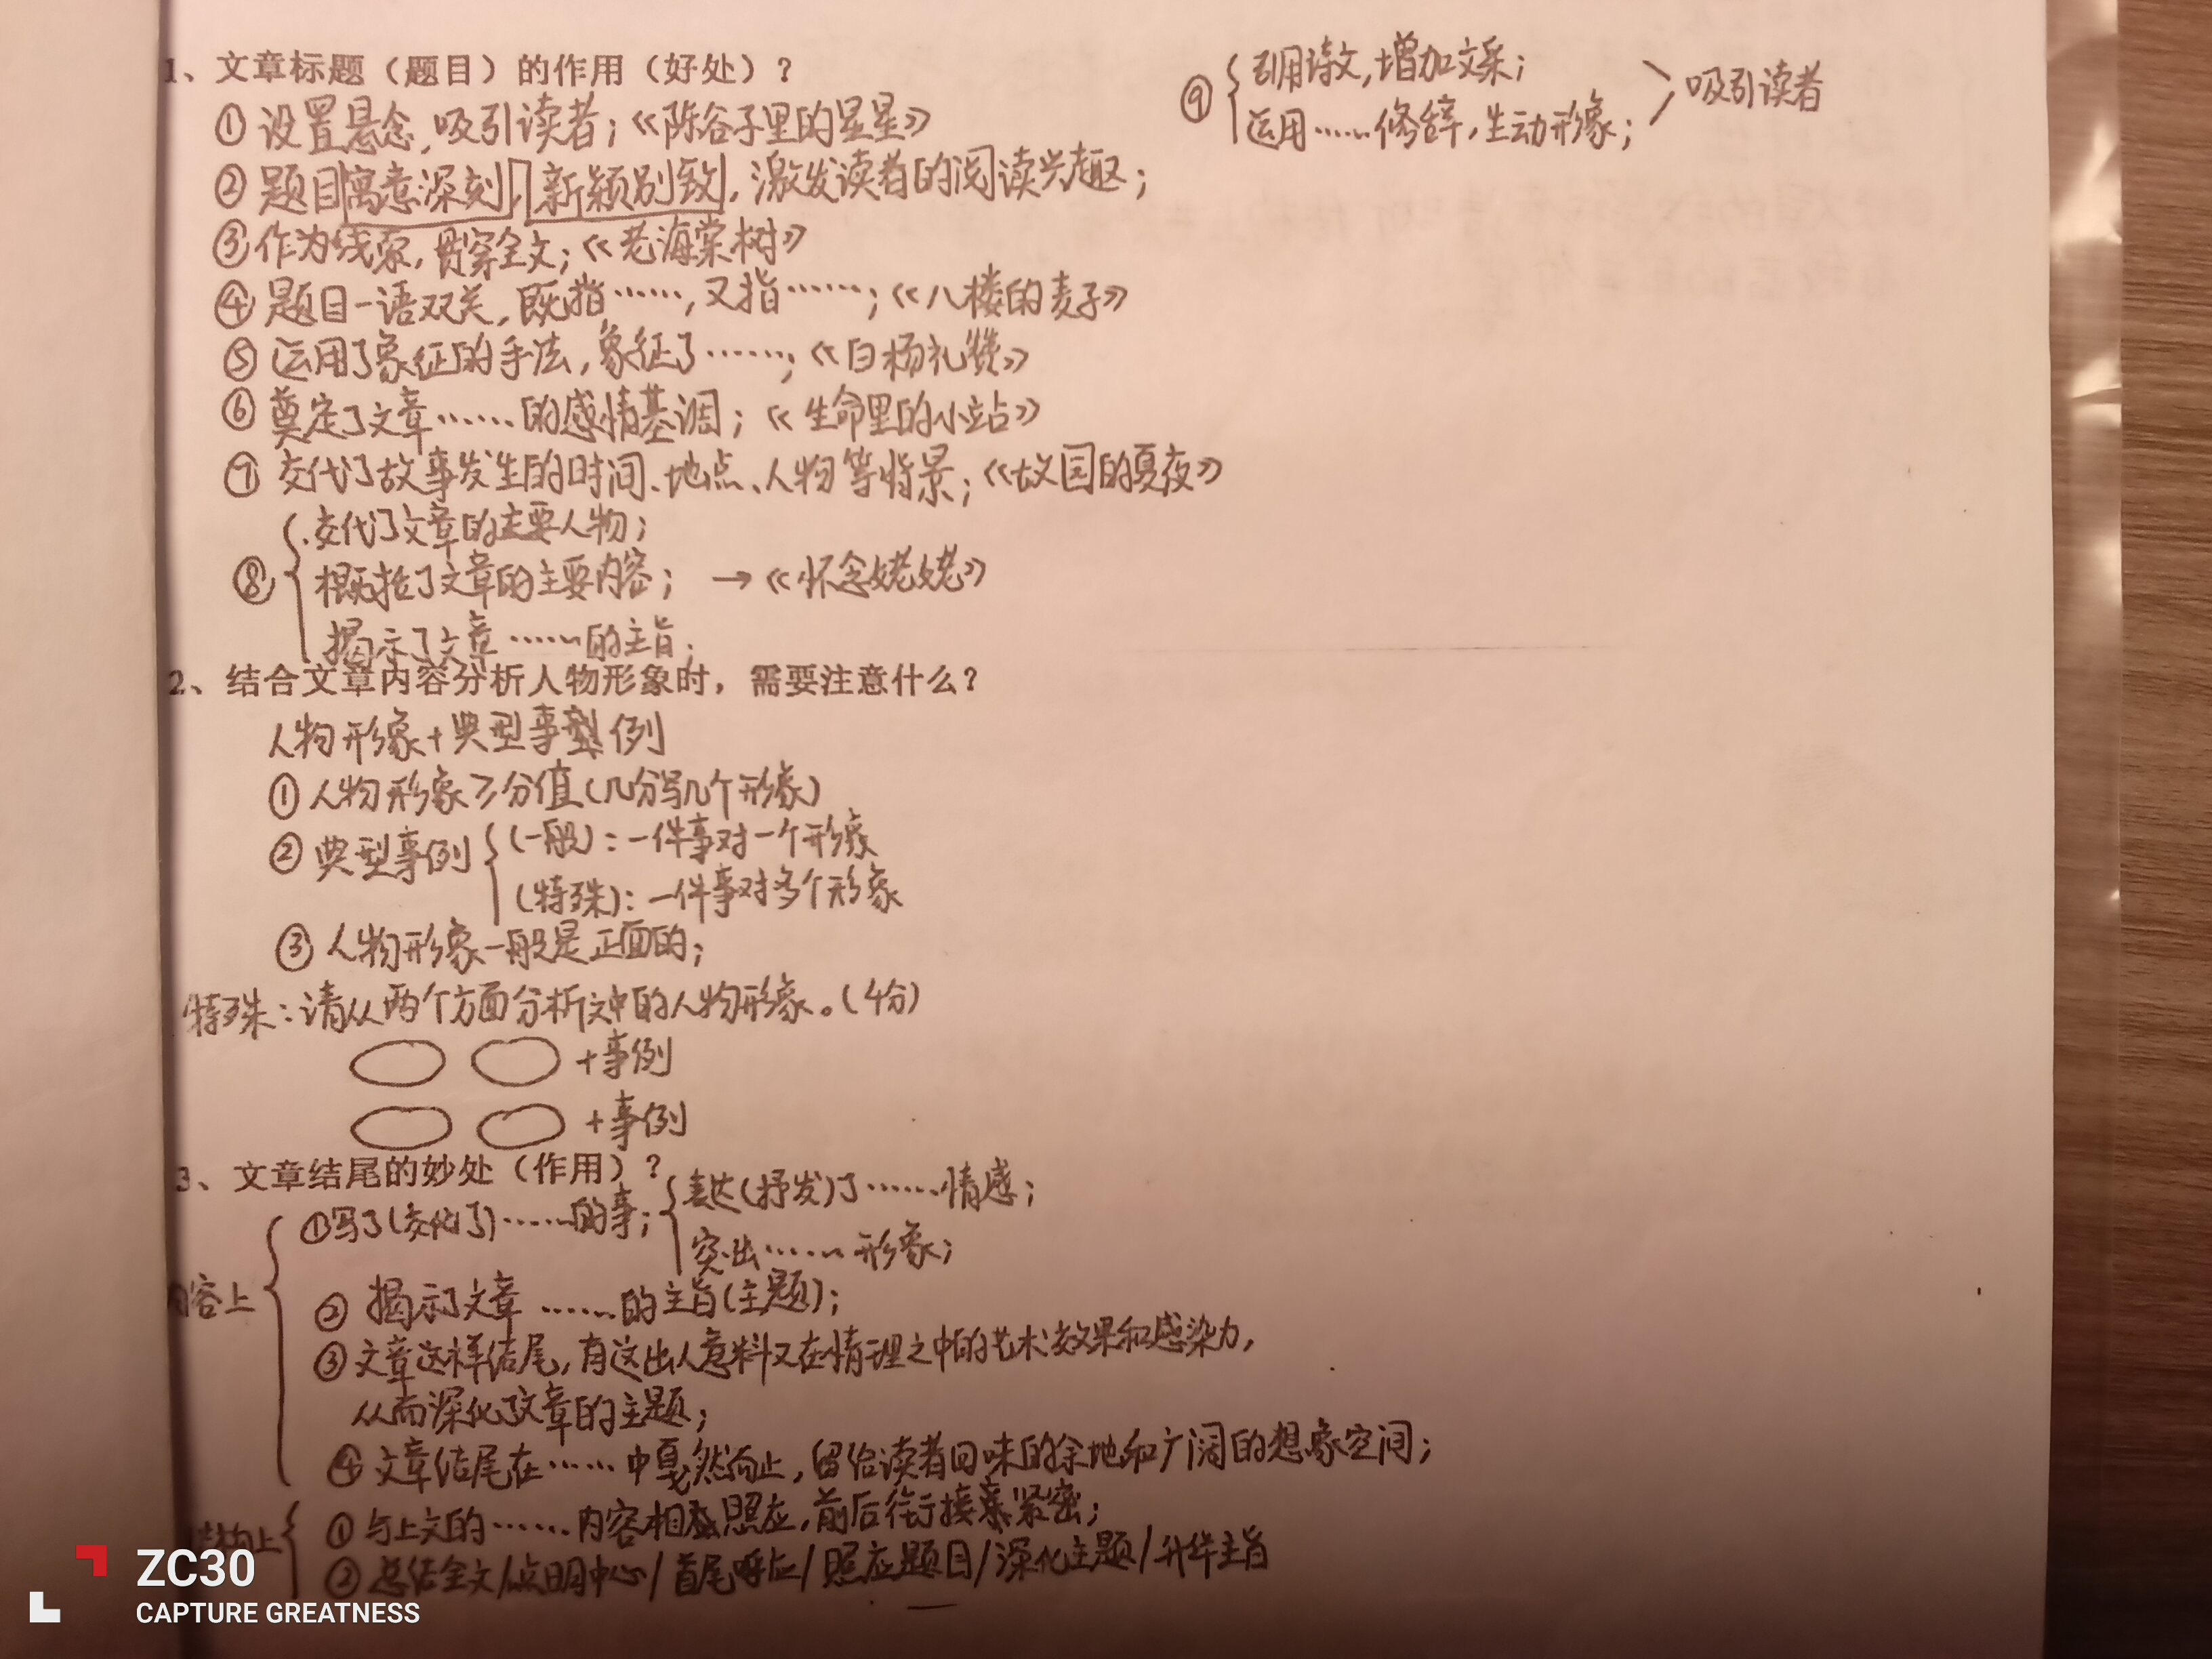 1、文章标题（题目）的作用（好处）？
①设置悬念,吸引读者;《陈谷子里的星星》
②题目寓意深刻,新颖别致,激发读者的阅读兴趣;
③作为线索,贯穿全文;《老海棠树》
④题目一语双关,既指……,又指……;《八楼的麦子》
⑤运用了象征的手法,象征了……;《白杨礼赞》
⑥奠定了文章……的感情基调;《生命里的小站》
⑦交代了故事发生的时间、地点、人物等背景;《故园的夏夜》
⑧ 交代了文章的主要人物;
概括了文章的主要内容; →《怀念姥姥》
揭示了文章……的主旨;
⑨ 引用诗文,增加文采;
运用……修辞,生动形象; 吸引读者
2、结合文章内容分析人物形象时，需要注意什么？
人物形象+典型事例
①人物形象≥分值(几分写几个形象)
②典型事例 (一般):一件事对一个形象
(特殊):一件事对多个形象
③人物形象一般是正面的;
特殊:请从两个方面分析文中的人物形象。(4分)
+事例
+事例
3、文章结尾的妙处（作用）？
内容上 ①写了(交代了)……的事; 表达(抒发)了……情感;
突出……形象;
②揭示了文章……的主旨(主题);
③文章这样结尾,有这出人意料又在情理之中的艺术效果和感染力,
从而深化了文章的主题;
④文章结尾在……中戛然而止,留给读者回味的余地和广阔的想象空间;
结构上 ①与上文的……内容相照应,前后衔接紧密;
②总结全文/点明中心/首尾呼应/照应题目/深化主题/升华主旨
ZC30
CAPTURE GREATNESS